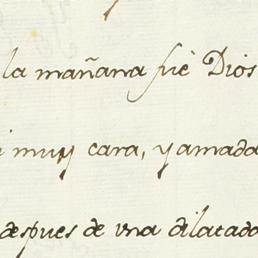 la mañana fué Dios
i muy cara, y amada
despues de una dilatada